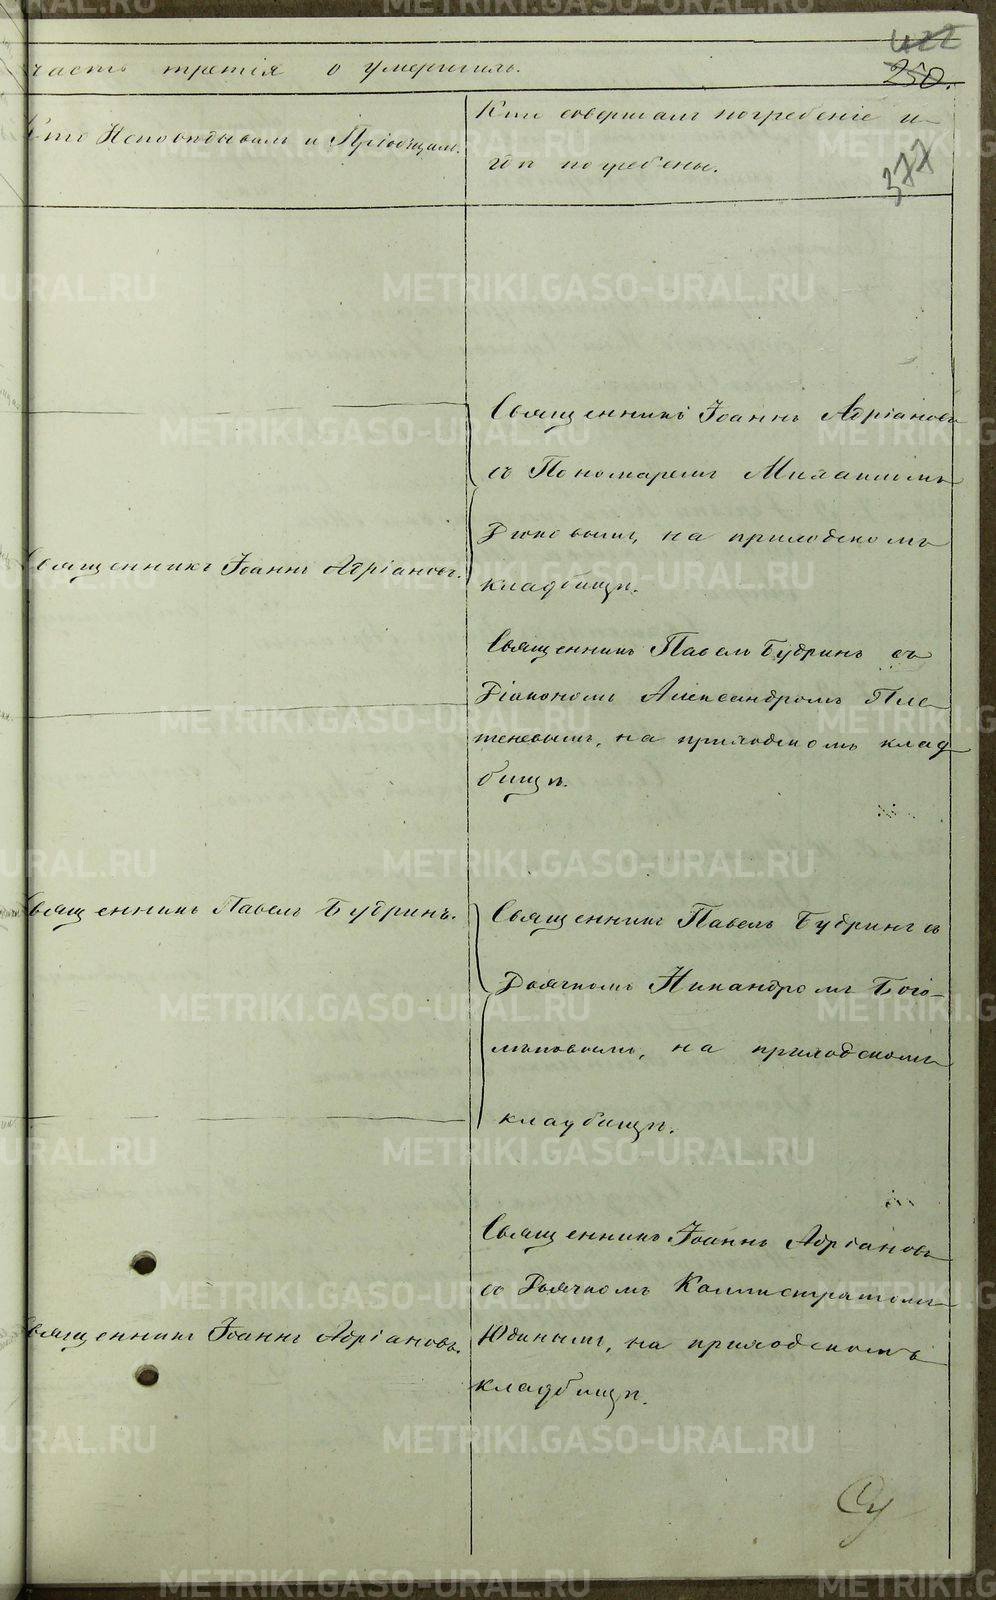 422
250.
часть третія о умершихъ.
Кто Исповѣдывалъ и Пріобщалъ.
Кто совершалъ погребеніе и
гдѣ погребены.
377
Священникъ Іоаннъ Адріановъ
съ Пономаремъ Михаиломъ
на приходскомъ
Священникъ Іоаннъ Адріановъ.
кладбищѣ.
Священникъ Павелъ Будринъ съ
Діакономъ Александромъ Пле-
теневымъ, на приходскомъ клад
бищѣ.
Священникъ Павелъ Будринъ.
Священникъ Павелъ Будринъ съ
Дьячкомъ Никандромъ Бого-
мъ, на приходскомъ
кладбищѣ.
Священникъ Іоаннъ Адріановъ
съ Дьячкомъ Каллистратомъ
Юдинымъ, на приходскомъ
Священникъ Іоаннъ Адріановъ.
кладбищѣ.
METRIKI.GASO-URAL.RU